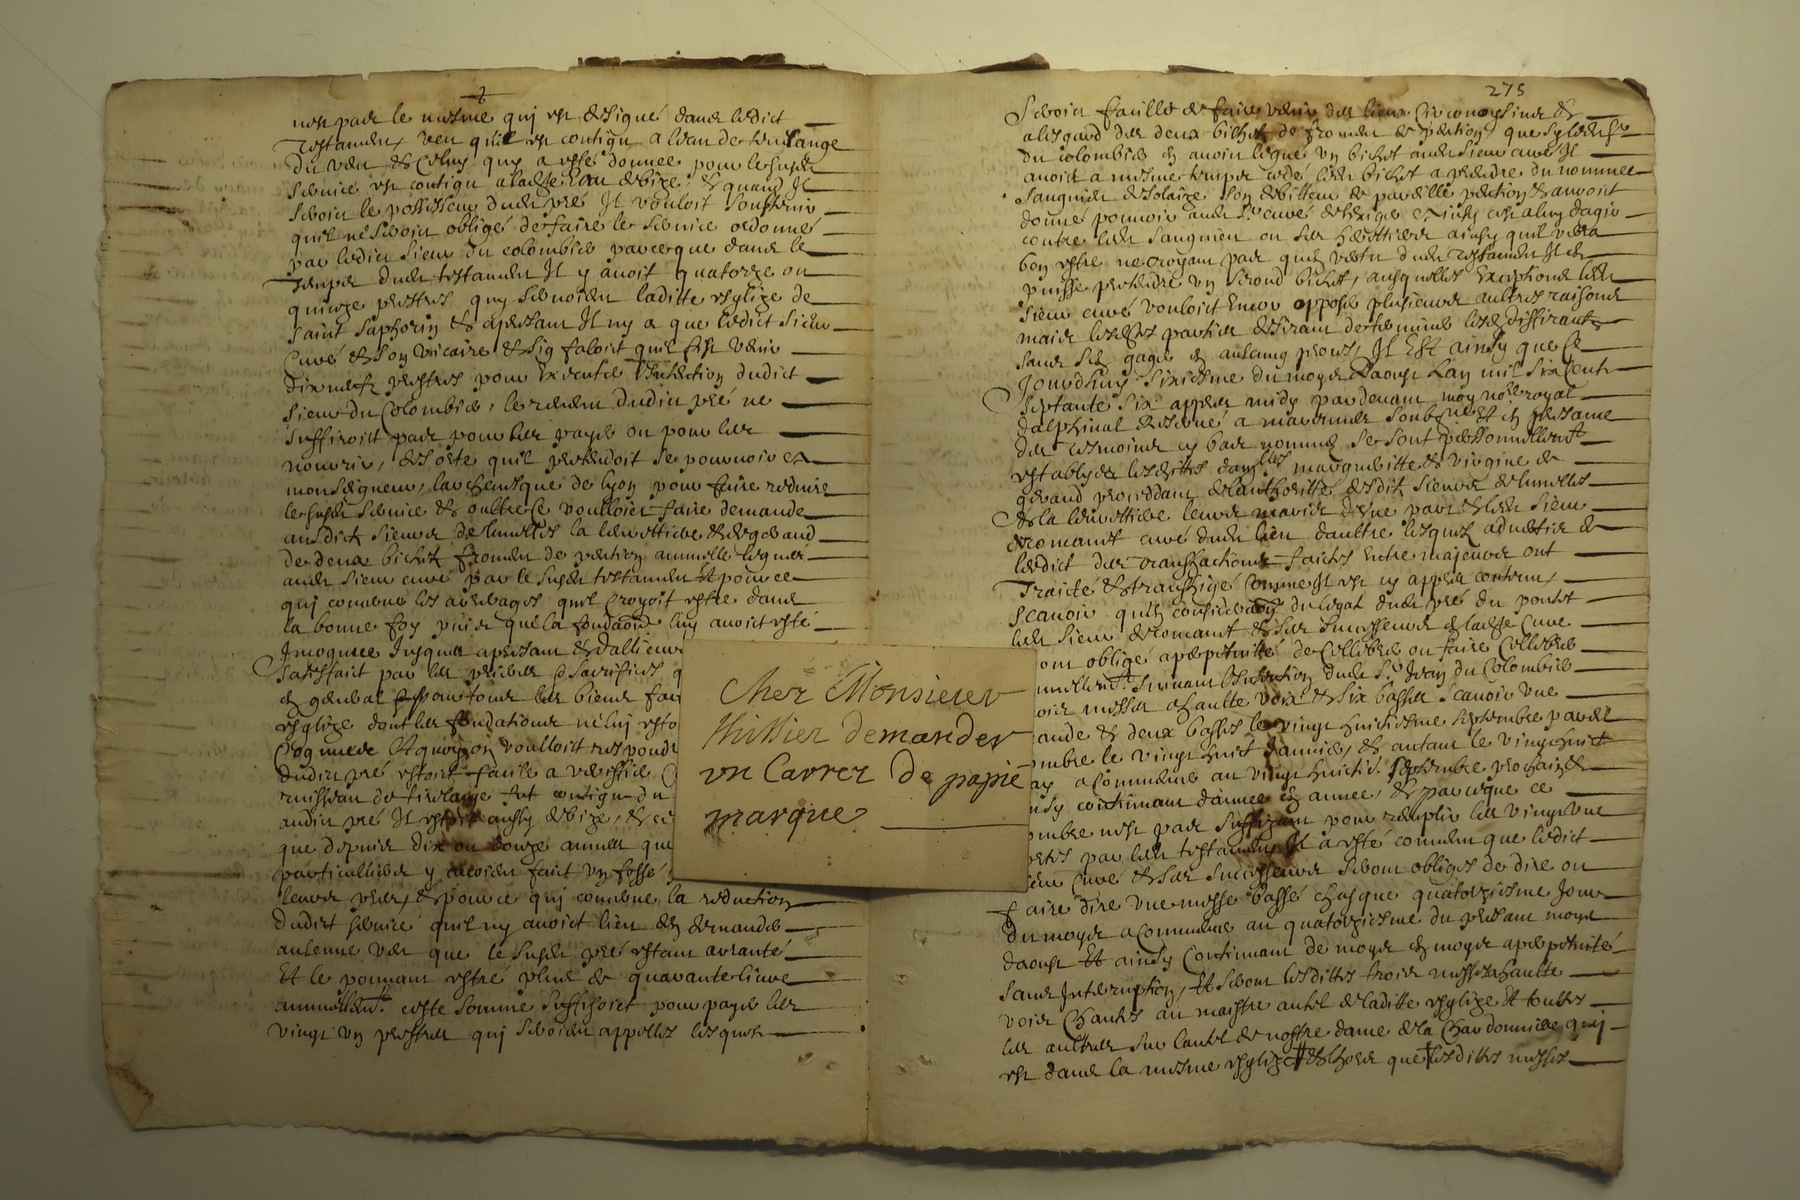 nest pas le mesme quj est designé dans ledict
Testament, veu quil est contigu a leau de
du vent & Celuy quy a esté donné pour le susdit
service est contigu a ladite Eau debize, & quand Jl
seroit le possesseur dudit pré Jl vouloit soustenir
quil ne seroit obligé de faire le service ordonné
par ledict sieur du colombier parceque dans le
Temps dudit testament Jl y avoit quatorze ou
quinze prestres quy servoient laditte esglize de
saint saphorin & apresant Jl ny a que ledict sieur
Curé & son vicaire & sig faloit quil fist venir
dixneuf prestres pour Executer lintention dudict
sieur du Colombier, le revenu dudit pré ne
suffiroit pas pour les payer ou pour les
nourrir, desorte quil pretendoit se pourvoir a
monseigneur, larchevesque de lyon pour faire reduire
le susdit service & oultre ce voulloict faire demande
ausdits sieurs de
de deux bichets froment de pention annuelle leguée
audit sieur curé par le susdit testament Et pour ce
quj concerne les arrerages quil croyoit estre dans
la bonne foy puis que la fondaon luy avoit esté
Jncogneue Jusques apresant
satisfait par les prieres & sacrifices
en general pour tous les bien fai
esglize dont les fondations ne luj esto
Cogneues A quoy on voulloict respondre
dudit pré estoit facile a verifier
ruisseau de fut contigu du
audit pré Jl estoit aussy debize, & ce
que depuis dix ou douze années que
particulliers y avoient faict un fossé
leurs prés, & pour ce quj concerne la reduction
dudict service quil ny avoict lieu den demander
aulcune veu que le susdit pré estant
Et le pouvant estre plus de quarante livres
annuellemt. ceste somme suffisoict pour payer les
vingt un prestres quj seroient appelles lesquels
275
seroit faillit de faire venir des lieux circonvoisins &
alesgard des deux bichets de froment de pention que
du colombier en avoit legué un bichet audit sieur curé Jl
avoit a mesme temps cedé ledit bichet a prendre du nommé
sanguin de solaize son debitteur de pareille pention & avoit
donné pouvoir audit sr. curé dagir
contre ledit sanguin ou ses heritiers ainsy quil verra
bon estre ne croyant pas quen vertu dudit testament Jl en
puisse pretendre un second bichet, ausquelles Exceptions ledit
sieur curé vouloict Encor opposer plusieurs aultres raisons
mais lesdites parties desirant determiner lesdits differants
sans Jl Est ainsy que Ce
Jourdhuy sixiesme du moys daoust Lan mil six Cents
septante six appres midy pardevant moy nore royal
dalphinal reservé a maronnes soubzné Et en presance
des tesmoings cy bas nommes se sont personnellemt
establyes lesdittes damlles margueritte & virgine de
girand procedant de lauthoritté desdits sieurs de
& la leurs maris dune part & ledit sieur
deromans curé dudit lieu daultre lesquels
ledict des transactions faictes entre majeurs ont
Traicté & transhigé comme Jl est cy appres contenu,
scavoir quen consideraon du legat dudit pré du ponet
ledit sieur deromans & ses successeurs a ladite Cure
ont obligé aperpetuitté de Cellebrer ou faire Cellebrer
nuellemt. suivant lintention dudit sr. Jean du Colombier
messes ahaulte voix & six basses scavoir une
ande & deux basses le vingt huictiesme septembre par
ombre le vingt huict Janvier, & autant le vingt huict
ay aCommencer au vingt huictie. septembre prochain &
nsy continuant dannee en annee, & parceque ce
ombre nest pas suffizant pour remplir les vingt une
par ledit testament Jl a esté convenu que ledict
ieur Curé & ses successeurs seront obliges de dire ou
faire dire une messe basse chasque quatorziesme Jour
du moys aCommencer au quatorziesme du presant moys
daoust Et ainsy Continuant de moys en moys aperpetuité
sans Jnterruption, Et seront lesdittes trois messes ahaulte
voix Chantes au maistre autel de laditte esglize Et toultes
les aultres sur lautel de nostre dame de la Chardonniere quj
est dans la mesme esglize & lhors que lesdittes messes
Cher Monsieur
Thissier demander
vn Carrer De papie
marque